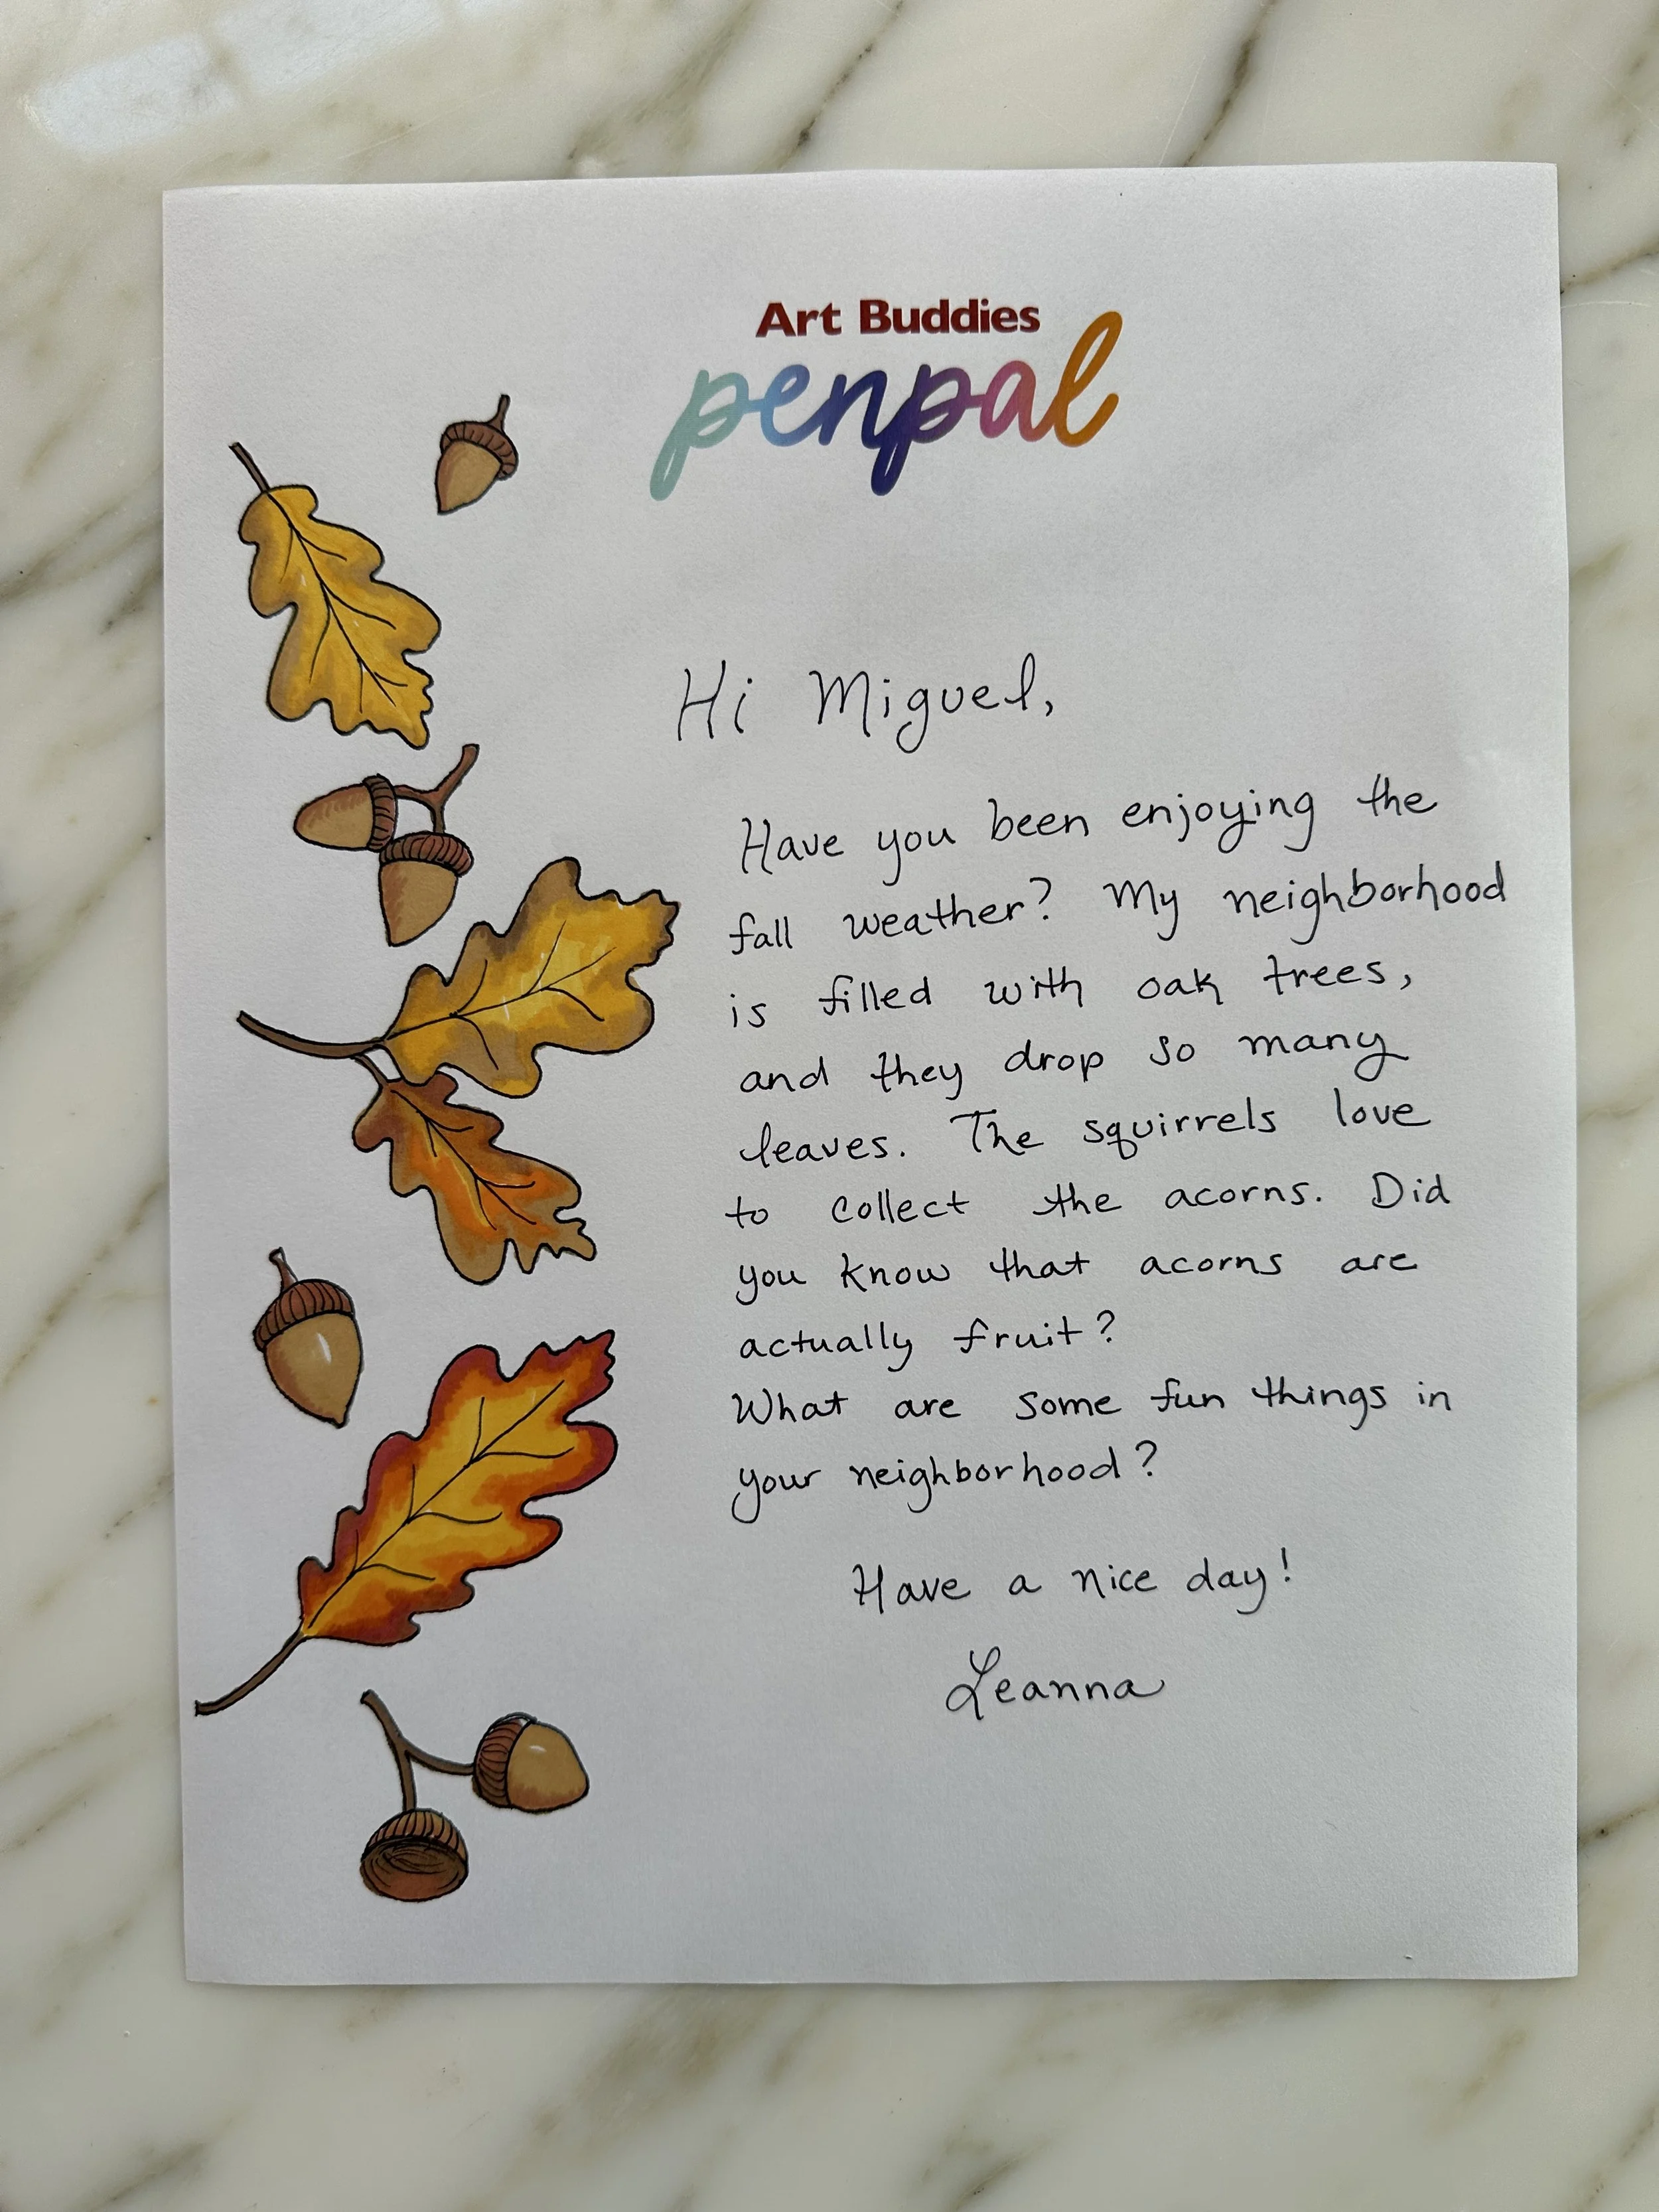 Art Buddies
penpal
Hi Miguel,
Have you been enjoying the
fall weather? My neighborhood
is filled with oak trees,
and they drop so many
leaves. The squirrels love
to collect the acorns. Did
you know that acorns are
actually fruit?
What are some fun things in
your neighborhood?
Have a nice day!
Leanna